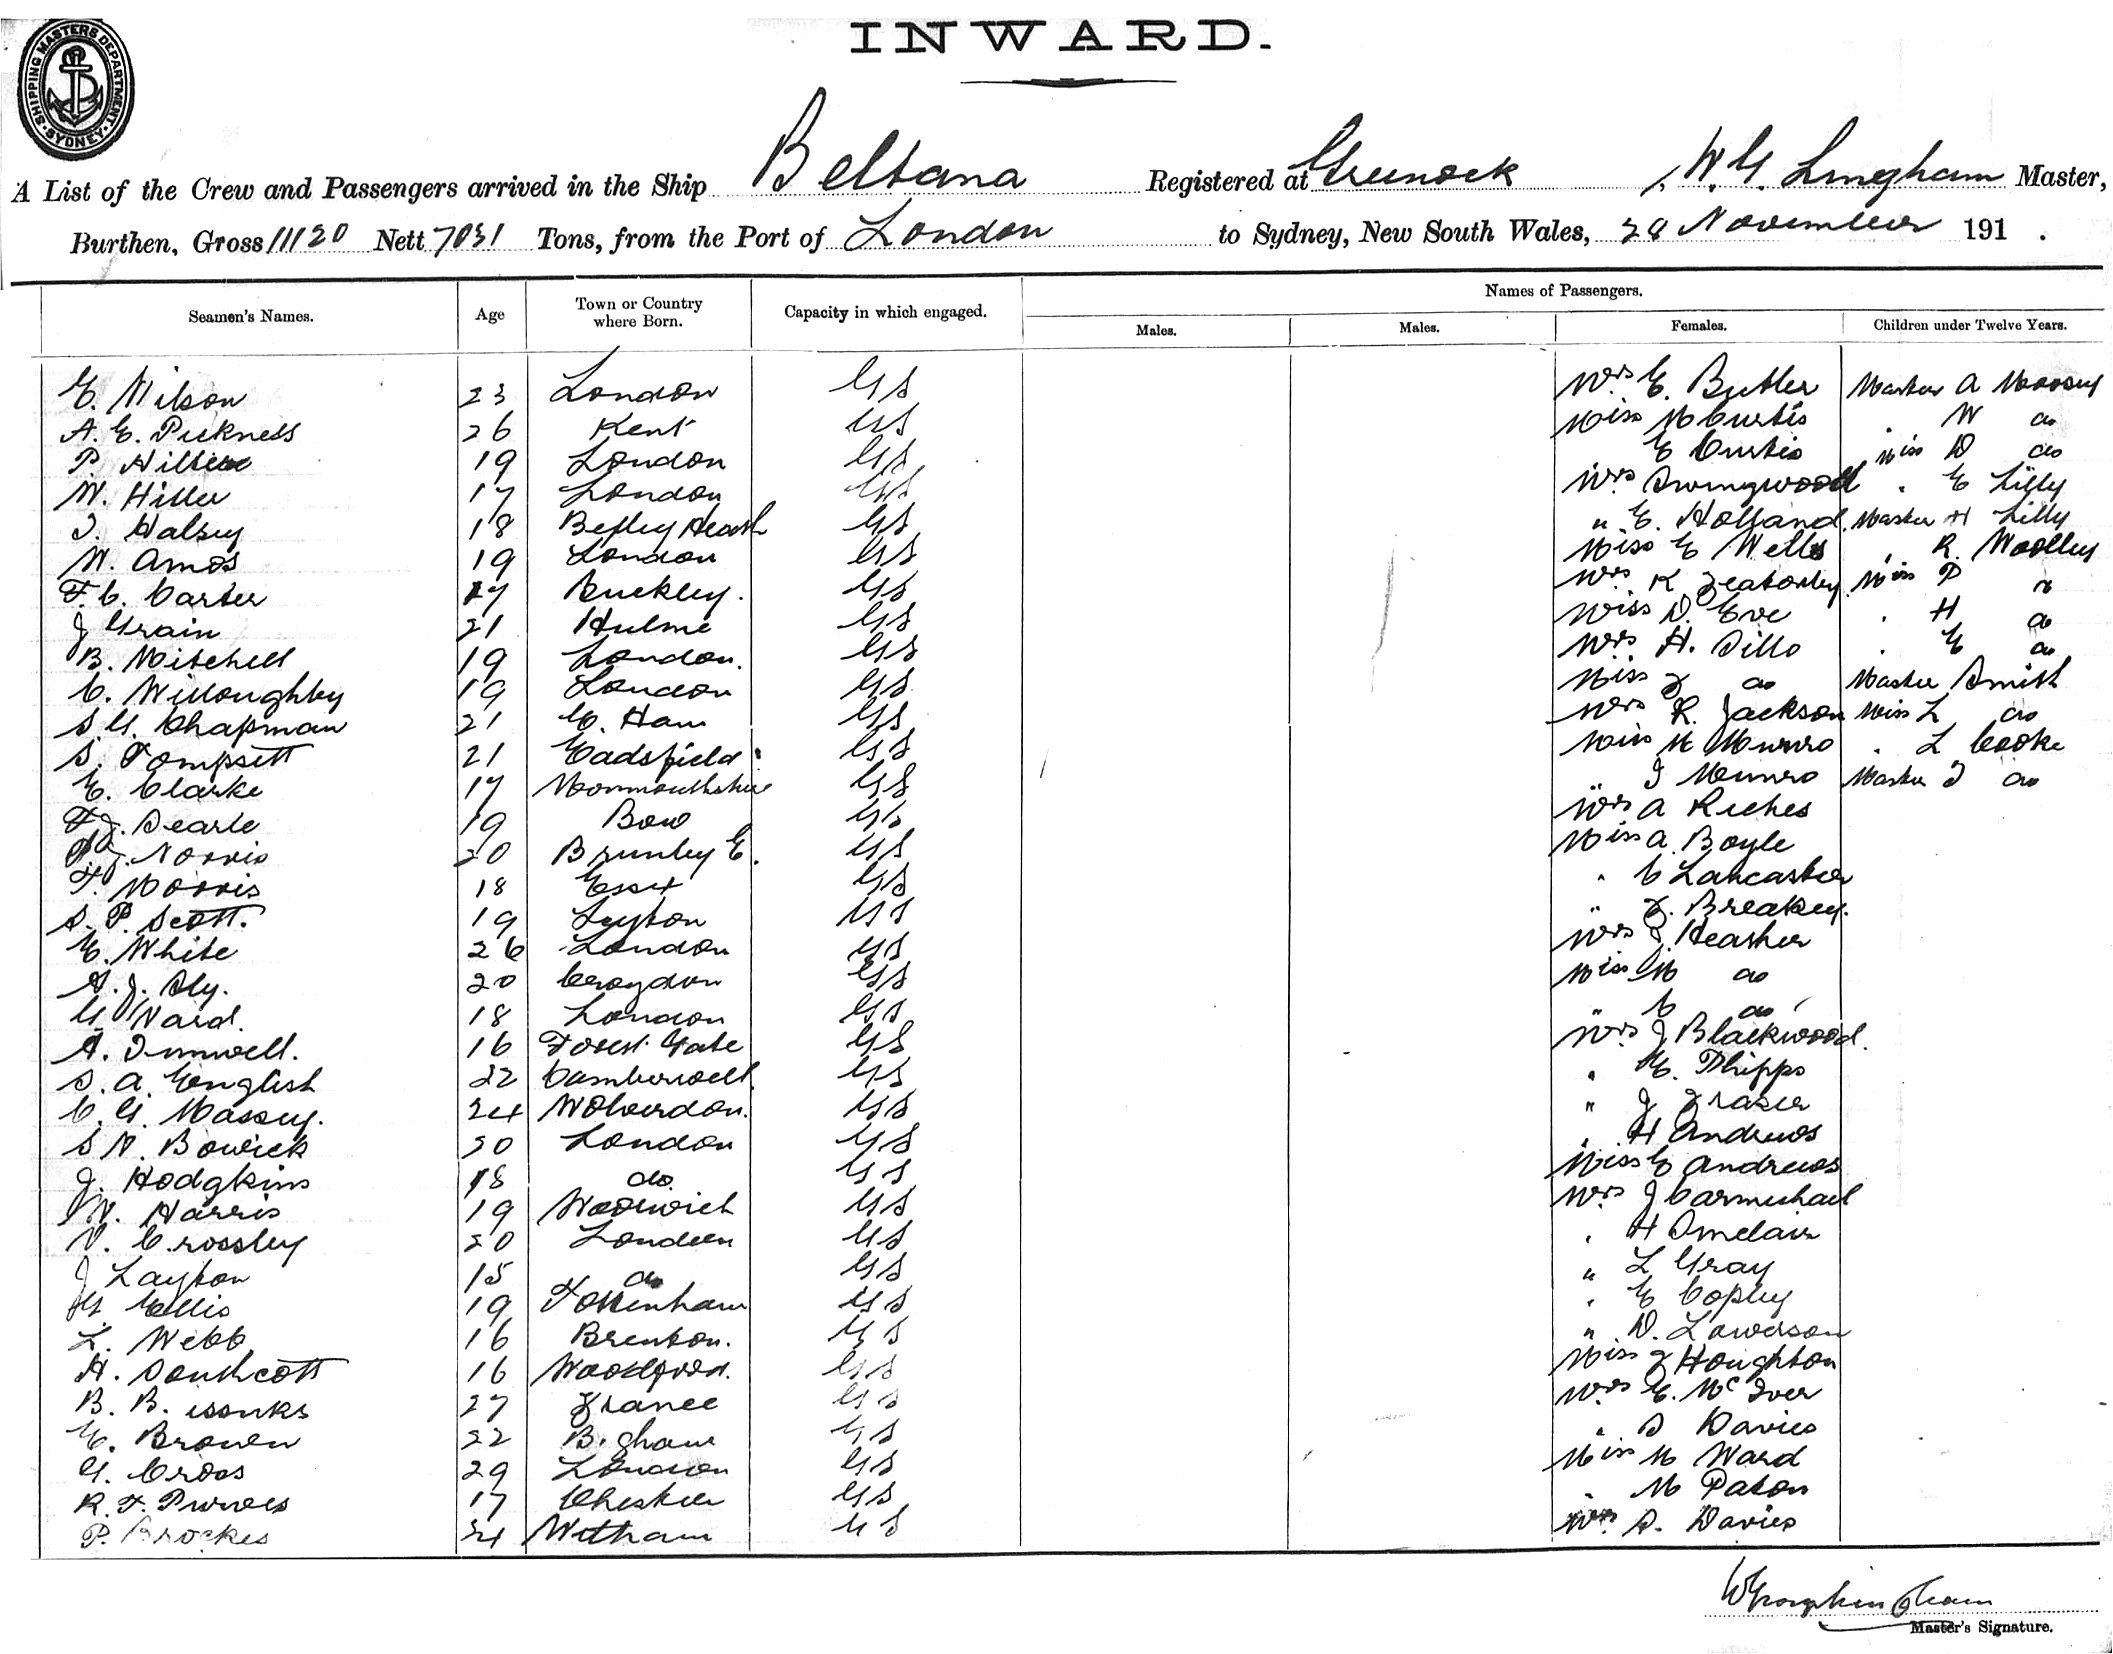 INWARD.
SHIPPING MASTERS DEPARTMENT SYDNEY
A List of the Crew and Passengers arrived in the Ship Beltana Registered at Greenock, W. G. Lingham Master,
Burthen, Gross 11120 Nett 7031 Tons, from the Port of London to Sydney, New South Wales, 28 November 191 .
Names of Passengers.
Seamen's Names. Age Town or Country where Born. Capacity in which engaged. Males. Males. Females. Children under Twelve Years.
E. Wilson 23 London GS Mrs E. Butler Master A Moosey
A. E. Pickness 26 Kent GS Miss M Curtis " W do
P. 19 London GS E Curtis Miss D do
W. Hiller 17 London GS Mrs Swingwood " E Lilly
J. Halsey 18 Bexley Heath GS " E. Holland Master H Lilly
W. Amos 19 London GS Miss E Wells " R. Woolley
F. C. Carter 17 Buckley. GS Mrs K Miss P do
J Grain 21 Hulme GS Miss D. Eve " H do
B. Mitchell 19 London. GS Mrs H. Sillo " E do
C. Willoughby 19 London GS Miss F do Master Smith
S. G. Chapman 21 E. Ham GS Mrs R. Jackson Miss L do
S. Tompsett 21 Eadsfield GS Miss M Munro " L Cooke
E. Clarke 17 Monmouthshire GS " J Munro Master J do
F J. Searle 19 Bow GS Mrs A Riches
J. Norris 20 Brumley E. GS Miss A Boyle
F. Morris 18 Essex GS " C Lancaster
S. P. Scott. 19 Leyton GS " F. Breakey.
E. White 26 London GS Mrs J. Heasher
A. J. Sly. 20 Croydon GS Miss M do
G Ward. 18 London GS " C do
A. Immwell. 16 Forest Gate GS Mrs J Blackwood.
S. A. English 22 Camberwell GS " E. Phipps
C. G. Massey. 24 Wolverdon. GS " J Frazer
S N. Bowick 20 London GS " H Andrews
J. Hodgkins 18 do. GS Miss E Andrews
W. Harris 19 Woolwich GS Mrs J Carmichael
V. Crossley 20 London GS " H Sinclair
J Layton 15 do GS " L Gray
G. Ellis 19 Tottenham GS " E Copley
L. Webb 16 Brenton. GS " D. Lowerson
H. Southcott 16 Woodford. GS Miss F Houghton
B. B. 27 France GS Mrs E. McIver
E. Brown 22 B.gham GS " S Davies
G. Cross 29 London GS Miss M Ward
R. F. Purves 17 Cheshire GS " M Paton
P. Brockes 24 Witham GS Mrs S. Davies
Master's Signature.